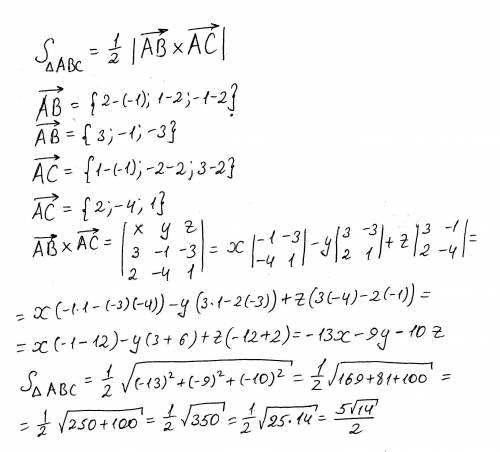 S△ABC = 1/2 |AB⃗ × AC⃗|
AB⃗ = {2-(-1); 1-2; -1-2}
AB⃗ = {3; -1; -3}
AC⃗ = {1-(-1); -2-2; 3-2}
AC⃗ = {2; -4; 1}
AB⃗ × AC⃗ = |x y z; 3 -1 -3; 2 -4 1| = x |-1 -3; -4 1| - y |3 -3; 2 1| + z |3 -1; 2 -4| =
= x(-1·1-(-3)(-4)) - y(3·1-2(-3)) + z(3(-4)-2(-1)) =
= x(-1-12) - y(3+6) + z(-12+2) = -13x - 9y - 10z
S△ABC = 1/2 √((-13)²+(-9)²+(-10)²) = 1/2 √(169+81+100) =
= 1/2 √(250+100) = 1/2 √350 = 1/2 √(25·14) = 5√14/2